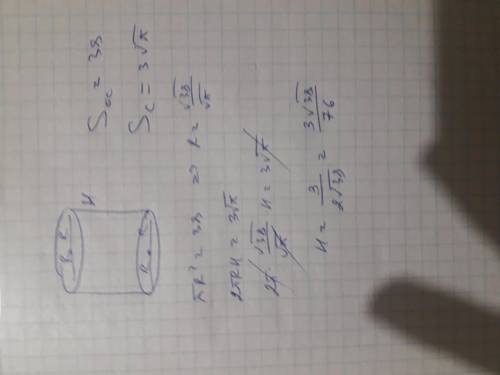 R
H
R
Sос = 38
Sс = 3√π
πR² = 38 => R = √38/√π
2πRH = 3√π
2π · √38/√π · H = 3√π
H = 3/2√38 = 3√38/76